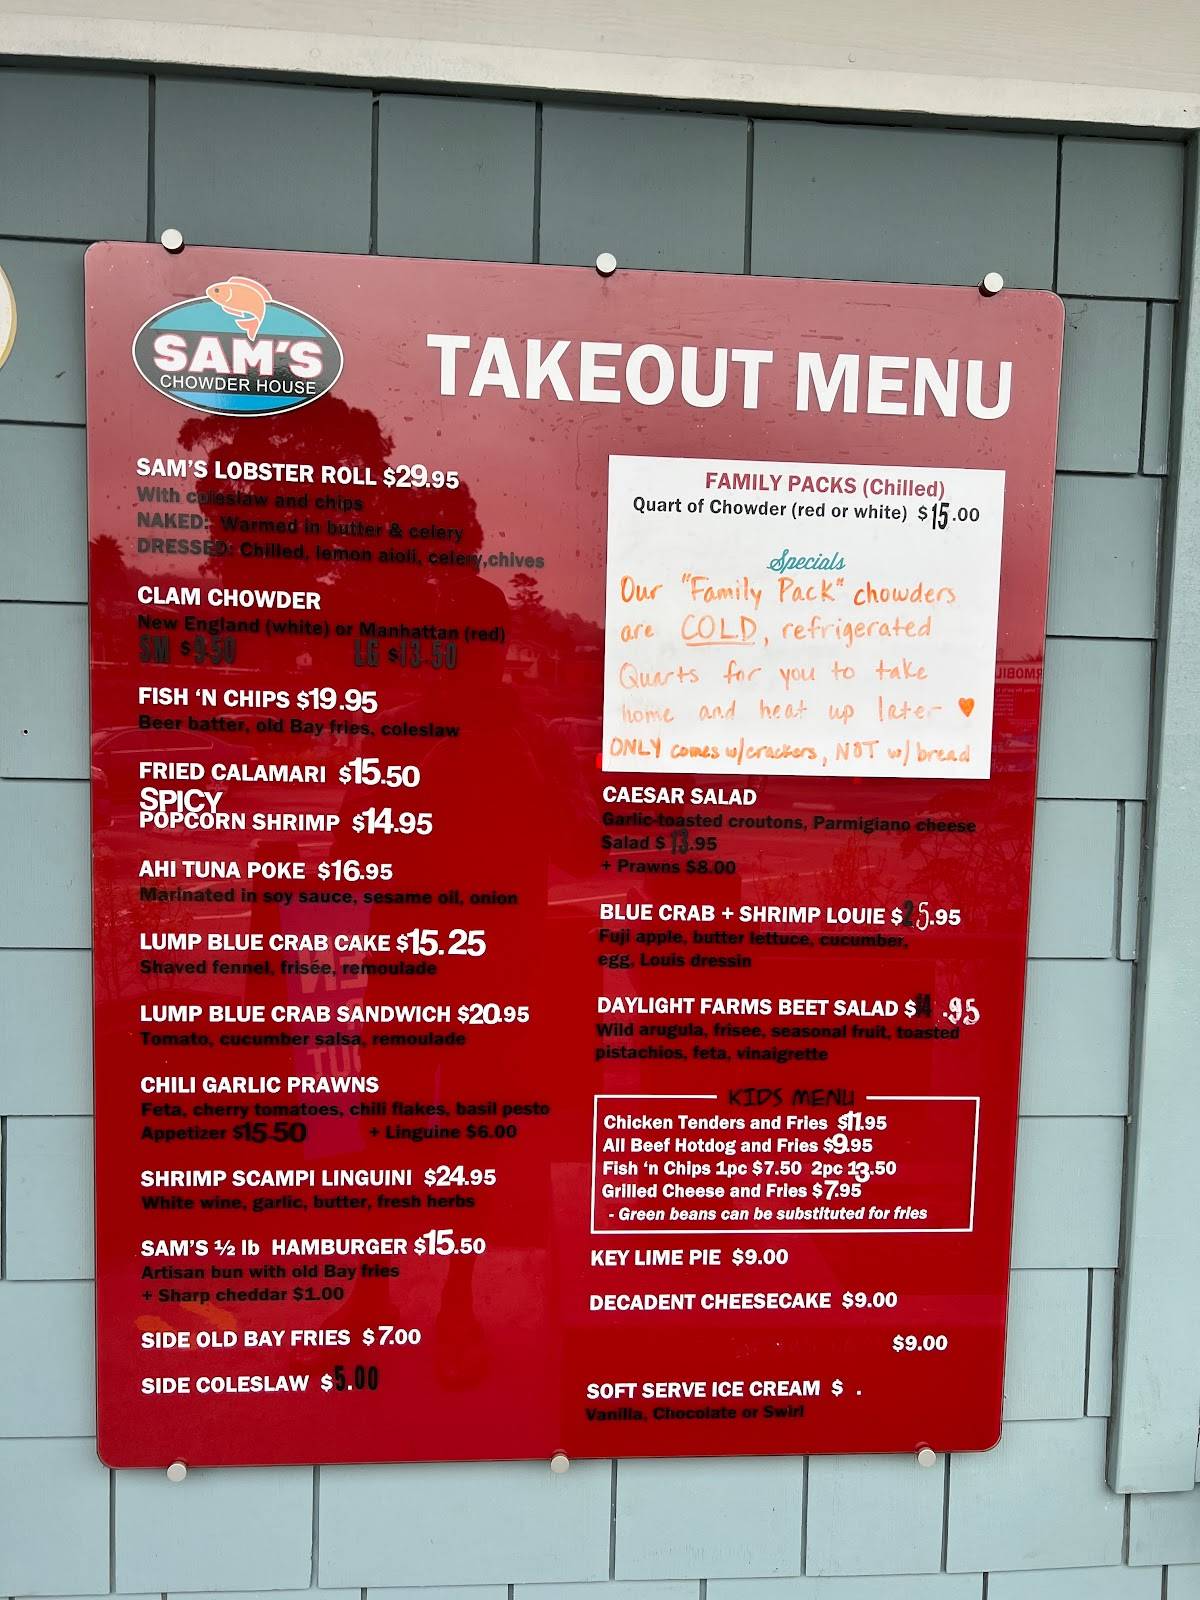 SAM'S
CHOWDER HOUSE
TAKEOUT MENU
SAM'S LOBSTER ROLL $29.95
With coleslaw and chips
NAKED: Warmed in butter & celery
DRESSED: Chilled, lemon aioli, celery,chives
CLAM CHOWDER
New England (white) or Manhattan (red)
SM $9.50 LG $13.50
FISH 'N CHIPS $19.95
Beer batter, old Bay fries, coleslaw
FRIED CALAMARI $15.50
SPICY
POPCORN SHRIMP $14.95
AHI TUNA POKE $16.95
Marinated in soy sauce, sesame oil, onion
LUMP BLUE CRAB CAKE $15.25
Shaved fennel, frisée, remoulade
LUMP BLUE CRAB SANDWICH $20.95
Tomato, cucumber salsa, remoulade
CHILI GARLIC PRAWNS
Feta, cherry tomatoes, chili flakes, basil pesto
Appetizer $15.50 + Linguine $6.00
SHRIMP SCAMPI LINGUINI $24.95
White wine, garlic, butter, fresh herbs
SAM'S ½ lb HAMBURGER $15.50
Artisan bun with old Bay fries
+ Sharp cheddar $1.00
SIDE OLD BAY FRIES $7.00
SIDE COLESLAW $5.00
FAMILY PACKS (Chilled)
Quart of Chowder (red or white) $15.00
Specials
Our "Family Pack" chowders
are COLD, refrigerated
Quarts for you to take
home and heat up later ♥
ONLY comes w/crackers, NOT w/ bread
CAESAR SALAD
Garlic-toasted croutons, Parmigiano cheese
Salad $13.95
+ Prawns $8.00
BLUE CRAB + SHRIMP LOUIE $25.95
Fuji apple, butter lettuce, cucumber,
egg, Louis dressin
DAYLIGHT FARMS BEET SALAD $14.95
Wild arugula, frisee, seasonal fruit, toasted
pistachios, feta, vinaigrette
KIDS MENU
Chicken Tenders and Fries $11.95
All Beef Hotdog and Fries $9.95
Fish 'n Chips 1pc $7.50 2pc 13.50
Grilled Cheese and Fries $7.95
- Green beans can be substituted for fries
KEY LIME PIE $9.00
DECADENT CHEESECAKE $9.00
$9.00
SOFT SERVE ICE CREAM $ .
Vanilla, Chocolate or Swirl